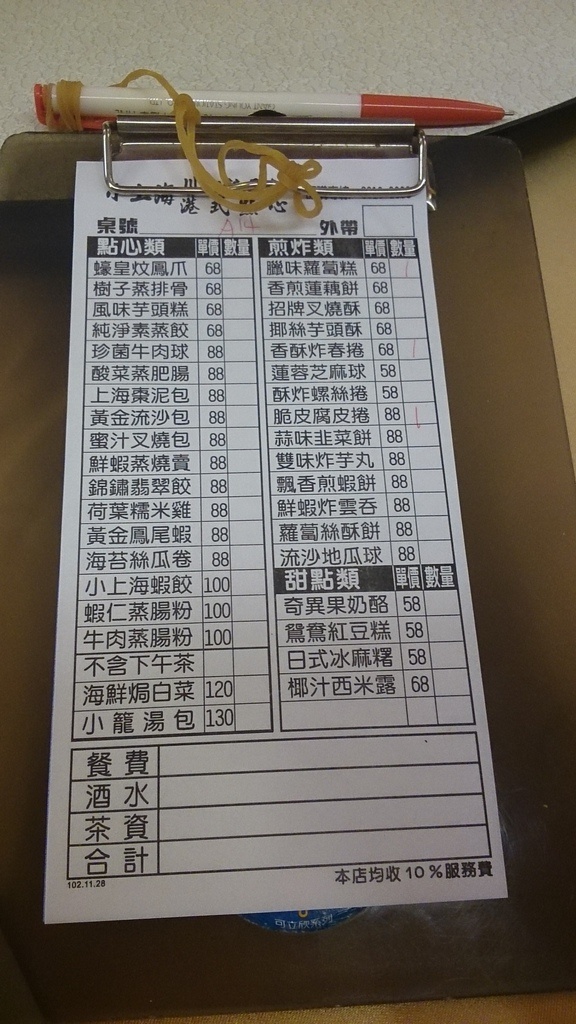 港式點心
桌號 A14 外帶
點心類 單價 數量
蠔皇炆鳳爪 68
樹子蒸排骨 68
風味芋頭糕 68
純淨素蒸餃 68
珍菌牛肉球 88
酸菜蒸肥腸 88
上海棗泥包 88
黃金流沙包 88
蜜汁叉燒包 88
鮮蝦蒸燒賣 88
錦鏽翡翠餃 88
荷葉糯米雞 88
黃金鳳尾蝦 88
海苔絲瓜卷 88
小上海蝦餃 100
蝦仁蒸腸粉 100
牛肉蒸腸粉 100
不含下午茶
海鮮焗白菜 120
小籠湯包 130
煎炸類 單價 數量
臘味蘿蔔糕 68 1
香煎蓮藕餅 68
招牌叉燒酥 68
椰絲芋頭酥 68
香酥炸春捲 68 1
蓮蓉芝麻球 58
酥炸螺絲捲 58
脆皮腐皮捲 88 1
蒜味韭菜餅 88
雙味炸芋丸 88
飄香煎蝦餅 88
鮮蝦炸雲吞 88
蘿蔔絲酥餅 88
流沙地瓜球 88
甜點類 單價 數量
奇異果奶酪 58
鴛鴦紅豆糕 58
日式冰麻糬 58
椰汁西米露 68
餐費
酒水
茶資
合計
102.11.28
本店均收10%服務費
可立欣系列